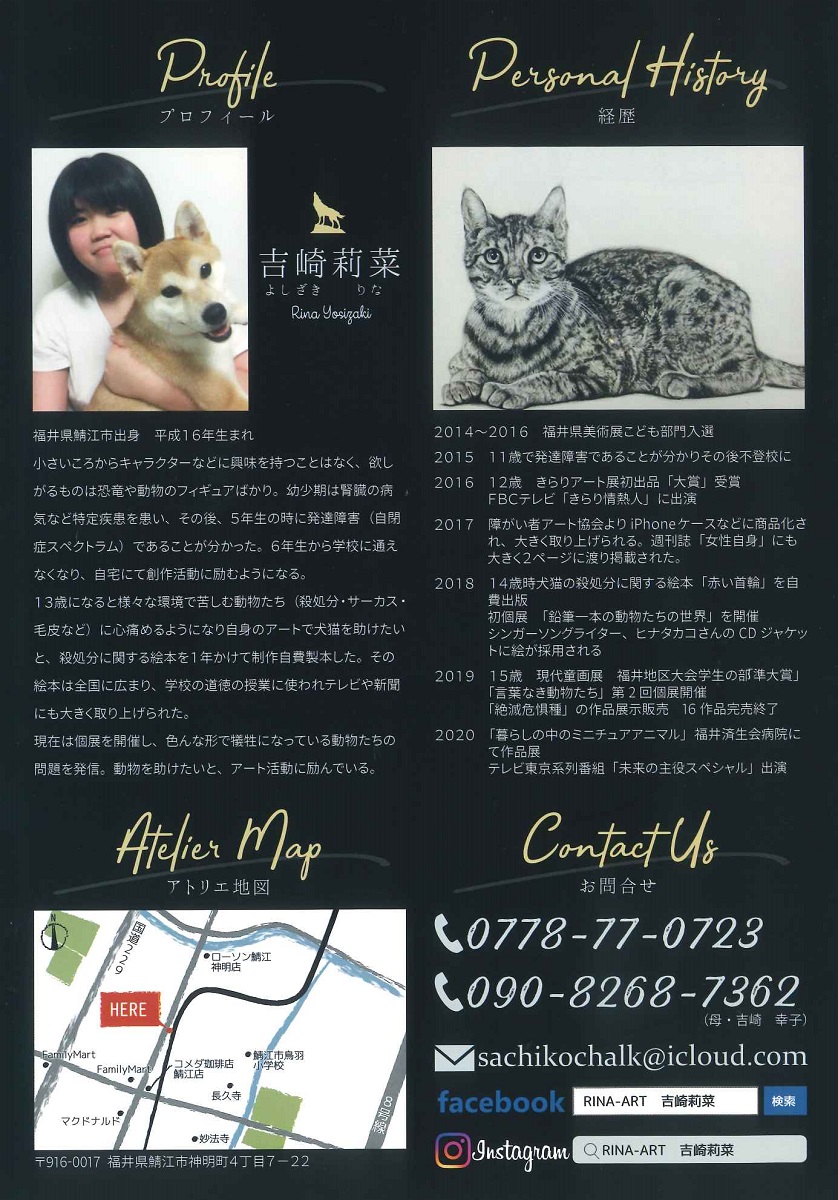 Profile
プロフィール
吉崎莉菜
よしざき りな
Rina Yosizaki
福井県鯖江市出身　平成16年生まれ
小さいころからキャラクターなどに興味を持つことはなく、欲し
がるものは恐竜や動物のフィギュアばかり。幼少期は腎臓の病
気など特定疾患を患い、その後、5年生の時に発達障害（自閉
症スペクトラム）であることが分かった。6年生から学校に通え
なくなり、自宅にて創作活動に励むようになる。
13歳になると様々な環境で苦しむ動物たち（殺処分・サーカス・
毛皮など）に心痛めるようになり自身のアートで犬猫を助けたい
と、殺処分に関する絵本を1年かけて制作自費製本した。その
絵本は全国に広まり、学校の道徳の授業に使われテレビや新聞
にも大きく取り上げられた。
現在は個展を開催し、色んな形で犠牲になっている動物たちの
問題を発信。動物を助けたいと、アート活動に励んでいる。
Personal History
経歴
2014～2016　福井県美術展こども部門入選
2015　11歳で発達障害であることが分かりその後不登校に
2016　12歳　きらりアート展初出品「大賞」受賞
FBCテレビ「きらり情熱人」に出演
2017　障がい者アート協会よりiPhoneケースなどに商品化さ
れ、大きく取り上げられる。週刊誌「女性自身」にも
大きく2ページに渡り掲載された。
2018　14歳時犬猫の殺処分に関する絵本「赤い首輪」を自
費出版
初個展　「鉛筆一本の動物たちの世界」を開催
シンガーソングライター、ヒナタカコさんのCDジャケッ
トに絵が採用される
2019　15歳　現代童画展　福井地区大会学生の部「準大賞」
「言葉なき動物たち」第2回個展開催
「絶滅危惧種」の作品展示販売　16作品完売終了
2020　「暮らしの中のミニチュアアニマル」福井済生会病院に
て作品展
テレビ東京系列番組「未来の主役スペシャル」出演
Atelier Map
アトリエ地図
N
国道229
ローソン鯖江
神明店
HERE
FamilyMart
FamilyMart
コメダ珈琲店
鯖江店
鯖江市鳥羽
小学校
長久寺
マクドナルド
妙法寺
8号線
〒916-0017 福井県鯖江市神明町4丁目7－22
Contact Us
お問合せ
0778-77-0723
090-8268-7362
（母・吉崎　幸子）
sachikochalk@icloud.com
facebook RINA-ART　吉崎莉菜 検索
Instagram RINA-ART　吉崎莉菜